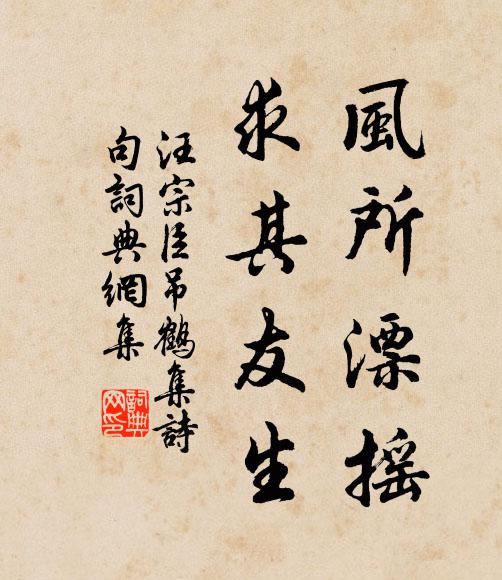 風所漂搖
求其友生
汪宗臣吊鶴集詩
句詞典網集
詞典
网印